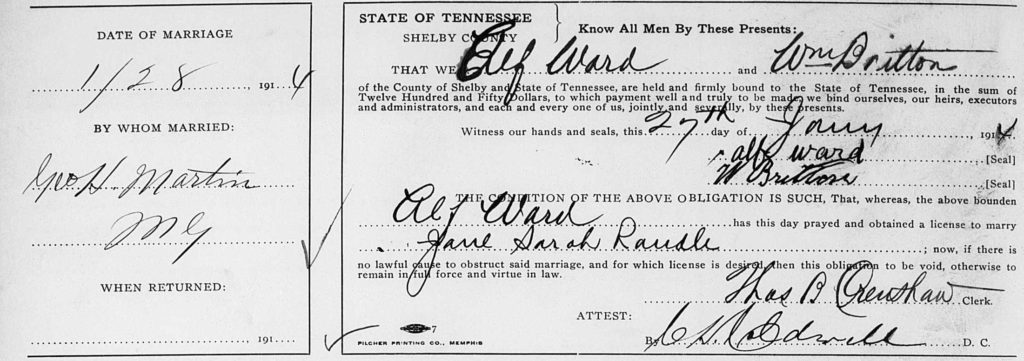 DATE OF MARRIAGE
1/28 1914
BY WHOM MARRIED:
Geo H. Martin
MG
WHEN RETURNED:
191
STATE OF TENNESSEE
SHELBY COUNTY
Know All Men By These Presents:
THAT WE Alf Ward and Wm Britton
of the County of Shelby and State of Tennessee, are held and firmly bound to the State of Tennessee, in the sum of
Twelve Hundred and Fifty Dollars, to which payment well and truly to be made we bind ourselves, our heirs, executors
and administrators, and each and every one of us, jointly and severally, by these presents.
Witness our hands and seals, this 27th day of Jany, 1914.
alf ward [Seal]
W Britton [Seal]
THE CONDITION OF THE ABOVE OBLIGATION IS SUCH, That, whereas, the above bounden
Alf Ward has this day prayed and obtained a license to marry
Jane Sarah Randle ; now, if there is
no lawful cause to obstruct said marriage, and for which license is desired, then this obligation to be void, otherwise to
remain in full force and virtue in law.
Thos B Crenshaw Clerk.
ATTEST:
By D. C.
7
PILCHER PRINTING CO., MEMPHIS